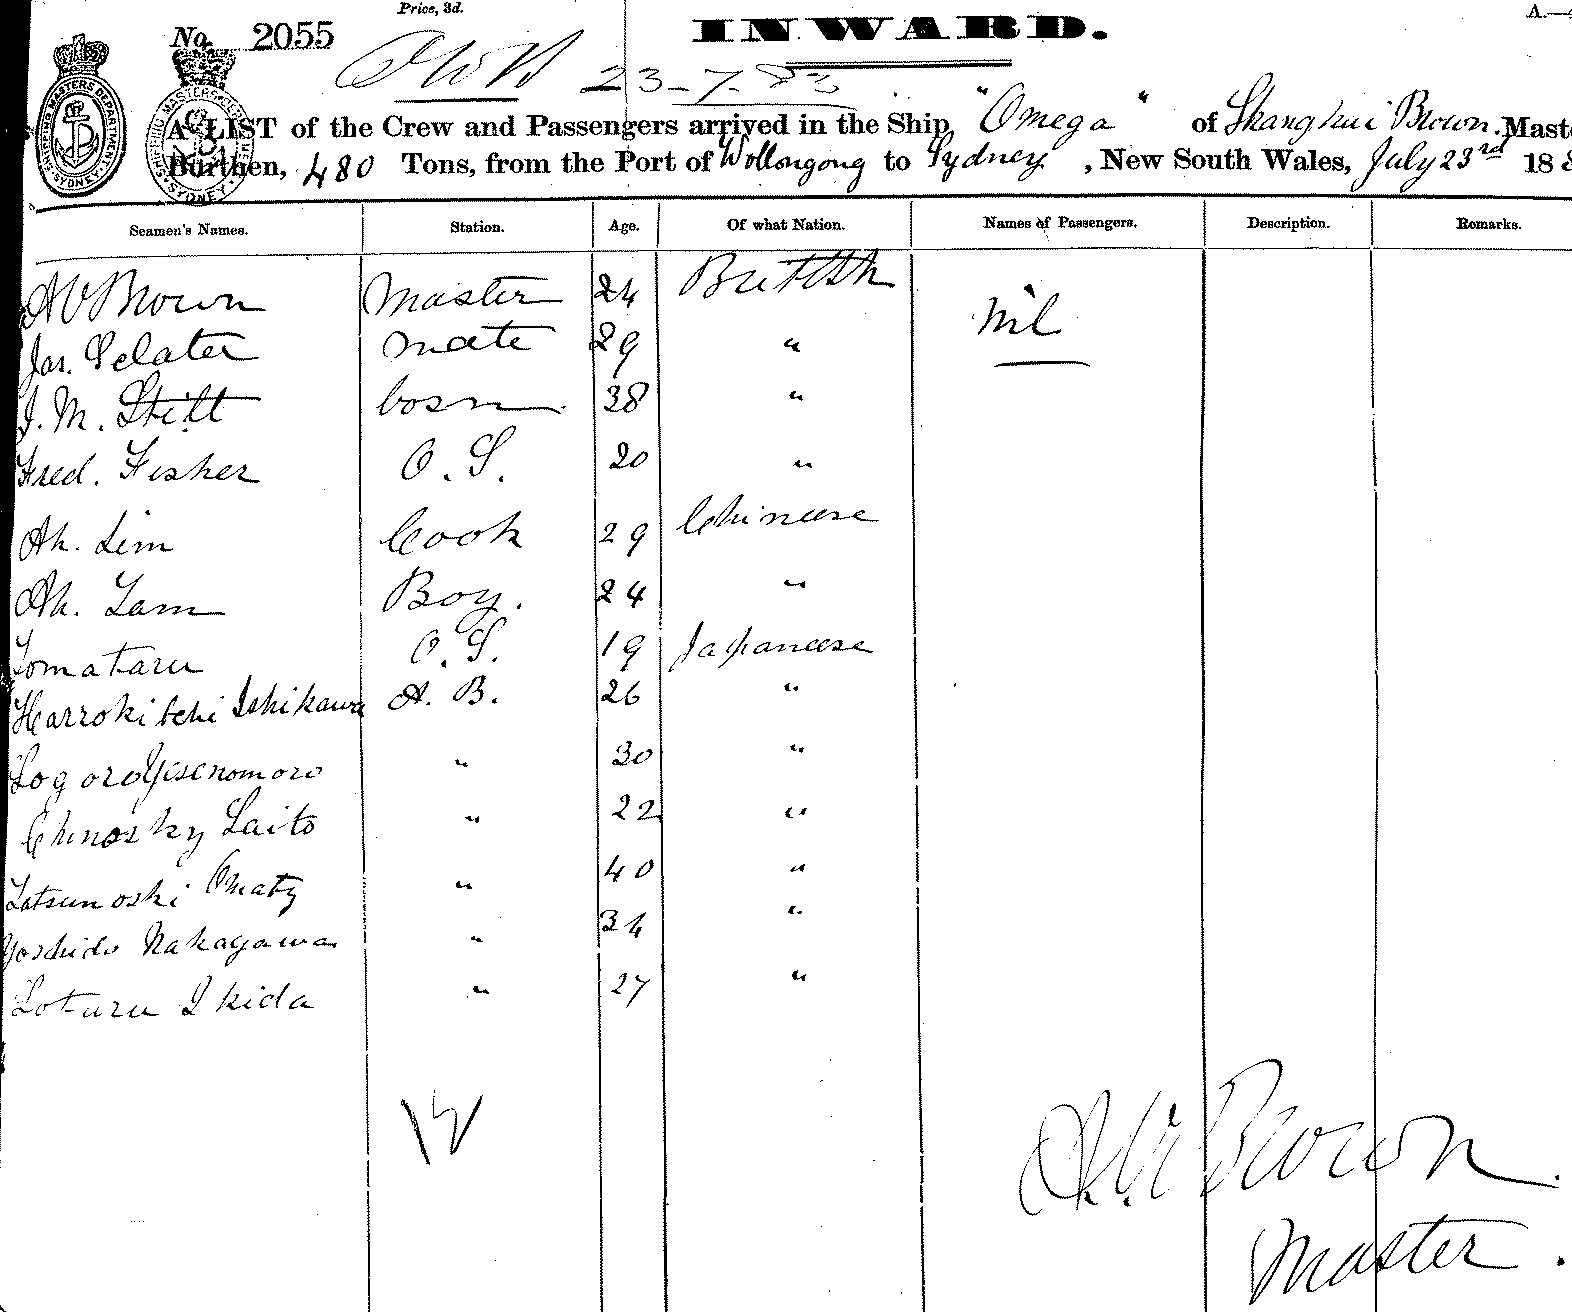 Price, 3d.
A.—
No. 2055
INWARD.
23-7-83
A LIST of the Crew and Passengers arrived in the Ship, "Omega" of Shanghai Brown. Maste
Burthen, 480 Tons, from the Port of Wollongong to Sydney, New South Wales, July 23rd 188
Seamen's Names. Station. Age. Of what Nation. Names of Passengers. Description. Remarks.
Brown Master 24 British Nil
Jas. Sclater mate 29 "
J. M. Stitt bosn 38 "
Fred. Fisher O. S. 20 "
Ah. Lim Cook 29 Chineese
Ah. Tam Boy. 24 "
Tomataru O. S. 19 Japaneese
Harrokitchi Ishikawa A. B. 26 "
" 30 "
Chinosky Saito " 22 "
Tatsunoski Omaty " 40 "
Yoshido Nakagawa " 34 "
Sotaru Ikida " 27 "
Brown
Master.